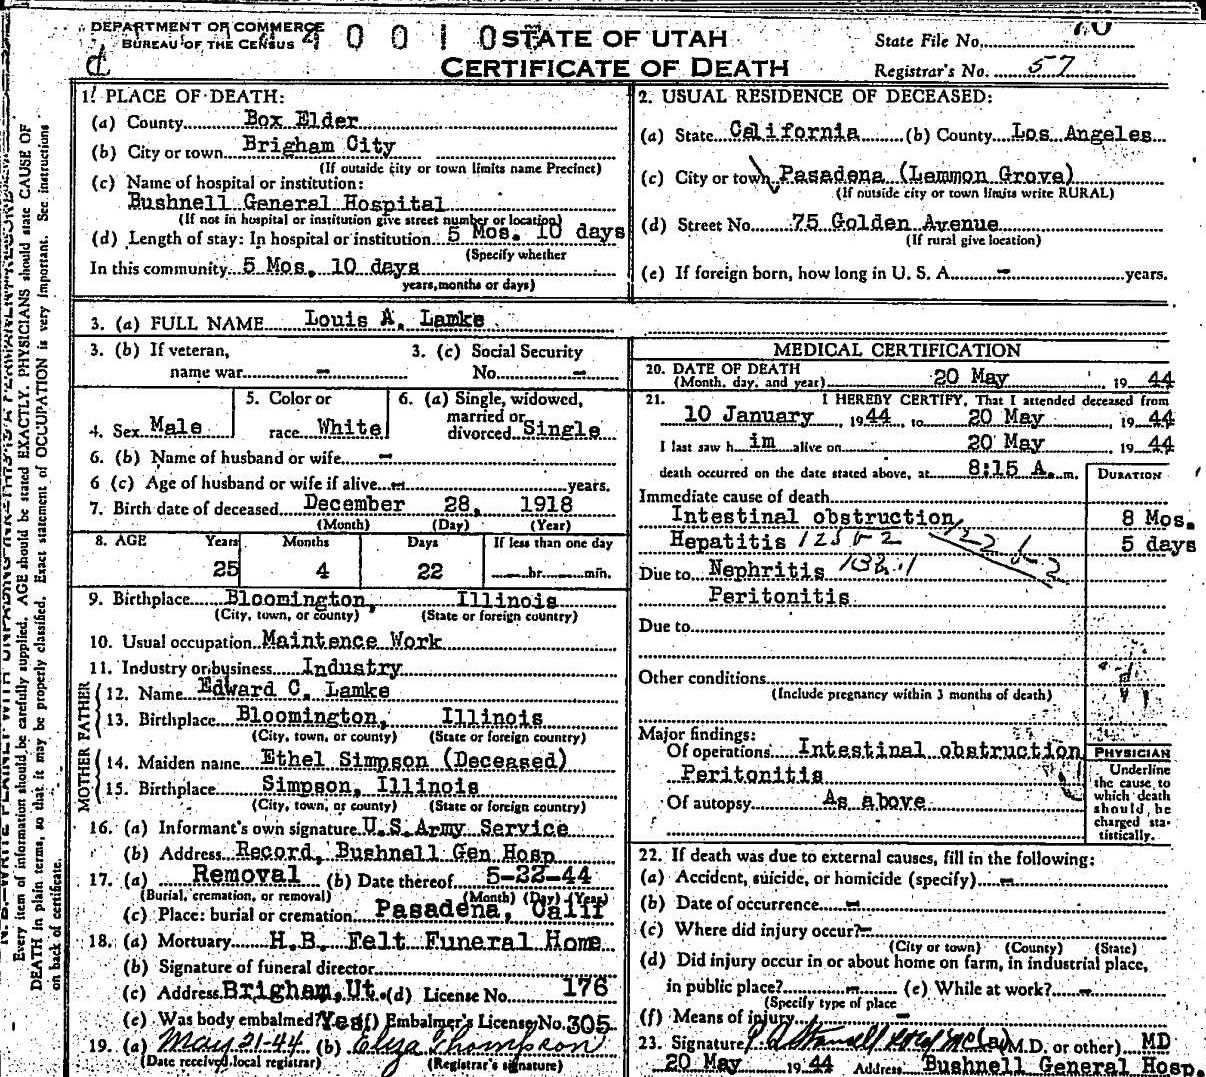 DEPARTMENT OF COMMERCE
BUREAU OF THE CENSUS
STATE OF UTAH
CERTIFICATE OF DEATH
State File No. 70
Registrar's No. 57
1. PLACE OF DEATH:
(a) County Box Elder
(b) City or town Brigham City
(If outside city or town limits name Precinct)
(c) Name of hospital or institution:
Bushnell General Hospital
(If not in hospital or institution give street number or location)
(d) Length of stay: In hospital or institution 5 Mos. 10 days
(Specify whether
In this community 5 Mos. 10 days
years, months or days)
2. USUAL RESIDENCE OF DECEASED:
(a) State California (b) County Los Angeles
(c) City or town Pasadena (Lemmon Grove)
(If outside city or town limits write RURAL)
(d) Street No. 75 Golden Avenue
(If rural give location)
(e) If foreign born, how long in U. S. A. - years.
3. (a) FULL NAME Louis A. Lamke
3. (b) If veteran,
name war -
3. (c) Social Security
No. -
4. Sex Male
5. Color or
race White
6. (a) Single, widowed,
married or
divorced Single
6. (b) Name of husband or wife -
6 (c) Age of husband or wife if alive - years.
7. Birth date of deceased December 28, 1918
(Month) (Day) (Year)
8. AGE Years Months Days If less than one day
25 4 22 hr. min.
9. Birthplace Bloomington, Illinois
(City, town, or county) (State or foreign country)
10. Usual occupation Maintence Work
11. Industry or business Industry
FATHER
12. Name Edward C. Lamke
13. Birthplace Bloomington, Illinois
(City, town, or county) (State or foreign country)
MOTHER
14. Maiden name Ethel Simpson (Deceased)
15. Birthplace Simpson, Illinois
(City, town, or county) (State or foreign country)
16. (a) Informant's own signature U.S. Army Service
(b) Address Record, Bushnell Gen Hosp
17. (a) Removal (b) Date thereof 5-22-44
(Burial, cremation, or removal) (Month) (Day) (Year)
(c) Place: burial or cremation Pasadena, Calif
18. (a) Mortuary H.B. Felt Funeral Home
(b) Signature of funeral director
(c) Address Brigham, Ut. (d) License No. 176
(e) Was body embalmed? Yes (f) Embalmer's License No. 305
19. (a) May 21-44 (b) Eliza Thompson
(Date received local registrar) (Registrar's signature)
MEDICAL CERTIFICATION
20. DATE OF DEATH
(Month, day, and year) 20 May 19 44
21. I HEREBY CERTIFY, That I attended deceased from
10 January, 19 44 to 20 May, 19 44
I last saw h im alive on 20 May 19 44
death occurred on the date stated above, at 8:15 A. m.
DURATION
Immediate cause of death
Intestinal obstruction 8 Mos.
Hepatitis 5 days
Due to Nephritis
Peritonitis
Due to
Other conditions
(Include pregnancy within 3 months of death)
Major findings:
Of operations Intestinal obstruction
Peritonitis
Of autopsy As above
PHYSICIAN
Underline
the cause to
which death
should be
charged sta-
tistically.
22. If death was due to external causes, fill in the following:
(a) Accident, suicide, or homicide (specify) -
(b) Date of occurrence -
(c) Where did injury occur? -
(City or town) (County) (State)
(d) Did injury occur in or about home on farm, in industrial place,
in public place? - (e) While at work? -
(Specify type of place
(f) Means of injury -
23. Signature (M.D. or other) MD
20 May 19 44 Address Bushnell General Hosp.
Every item of information should be carefully supplied. AGE should be stated EXACTLY. PHYSICIANS should state CAUSE OF
DEATH in plain terms, so that it may be properly classified. Exact statement of OCCUPATION is very important. See instructions
on back of certificate.